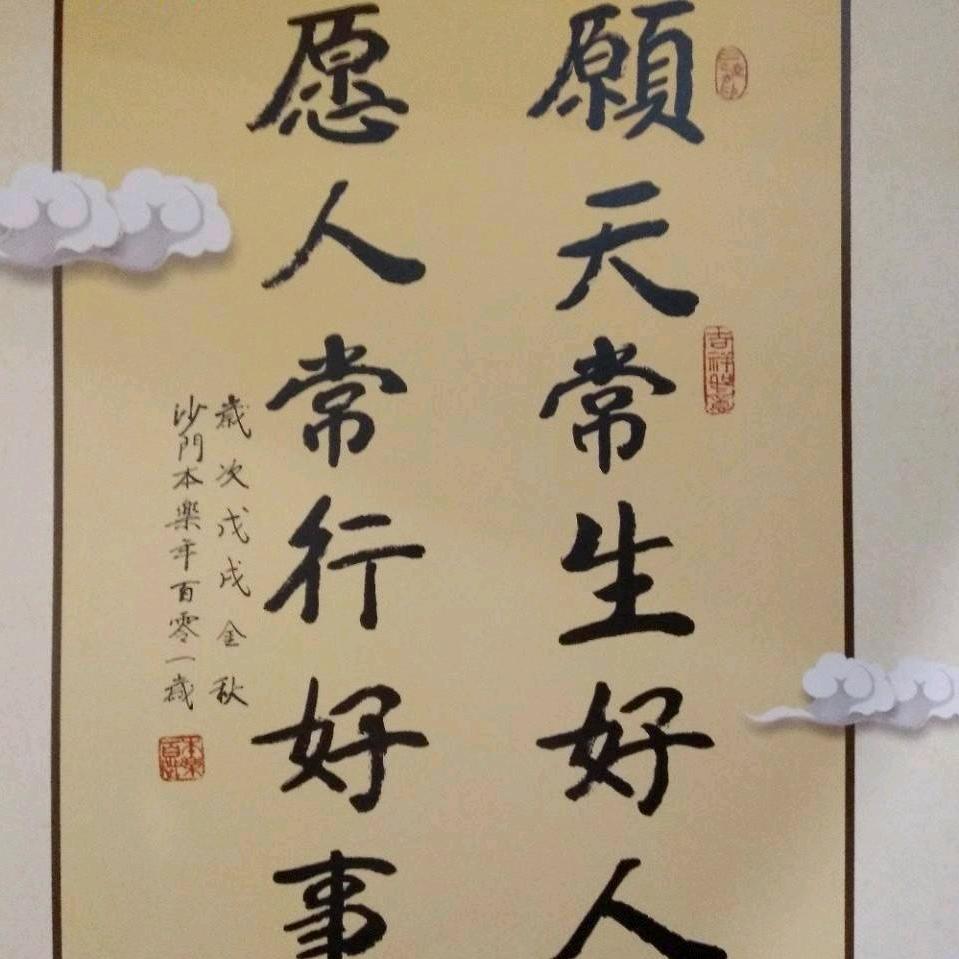 願天常生好人
愿人常行好事
歲次戊戌金秋
沙門本樂年百零一歲